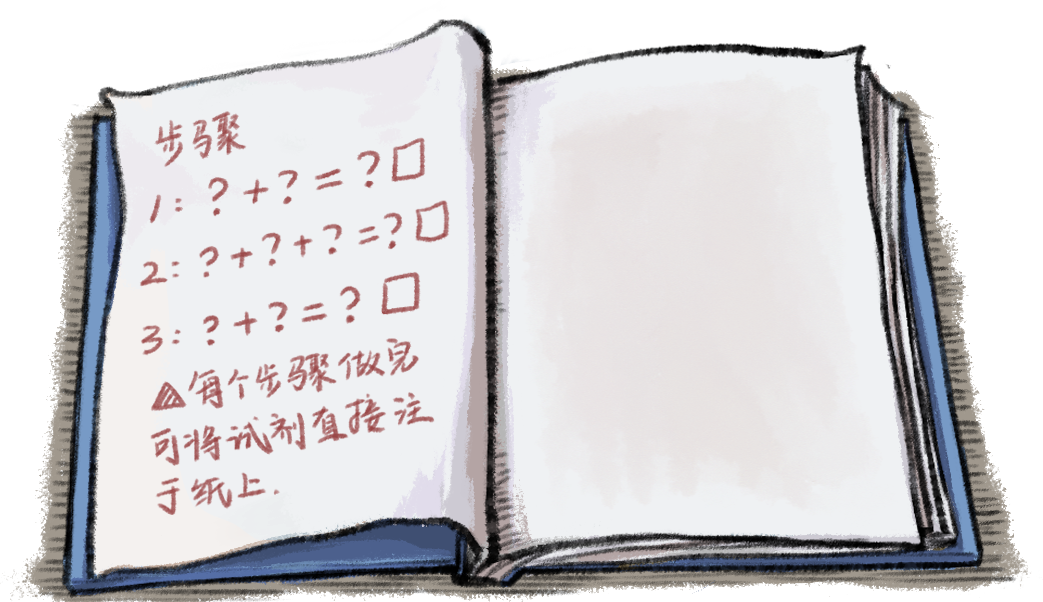 步骤
1: ?+?=?□
2: ?+?+?=?□
3: ?+?=?□
▲每个步骤做完
可将试剂直接注
于纸上.